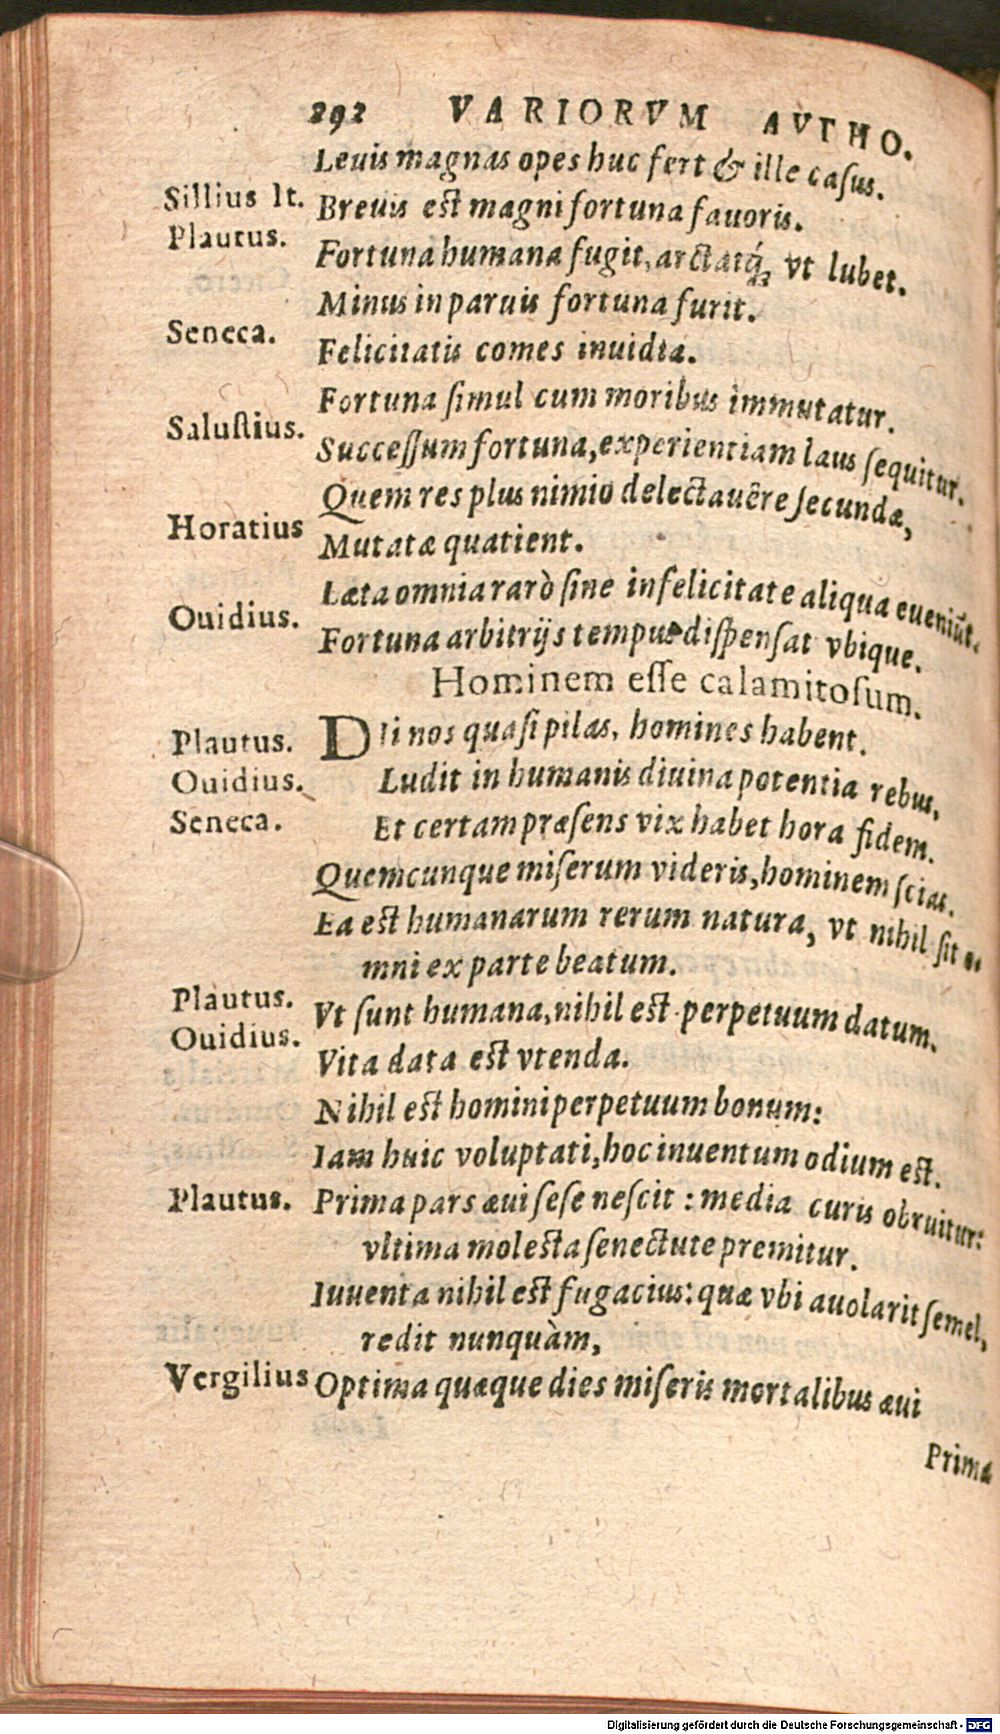 292 VARIORVM AVTHO.
Leuis magnas opes huc fert & ille casus.
Sillius It. Breuis est magni fortuna fauoris.
Plautus. Fortuna humana fugit, arctatq́; vt lubet.
Minus in paruis fortuna furit.
Seneca. Felicitatis comes inuidia.
Fortuna simul cum moribus immutatur.
Salustius. Successum fortuna, experientiam laus sequitur.
Quem res plus nimio delectauêre secundæ,
Horatius Mutatæ quatient.
Læta omnia rarò sine infelicitate aliqua eueniũt.
Ouidius. Fortuna arbitrijs tempus dispensat vbique.
Hominem esse calamitosum.
Plautus. DIi nos quasi pilas, homines habent.
Ouidius. Ludit in humanis diuina potentia rebus,
Seneca. Et certam præsens vix habet hora fidem.
Quemcunque miserum videris, hominem scias.
Ea est humanarum rerum natura, vt nihil sit o-
mni ex parte beatum.
Plautus. Vt sunt humana, nihil est perpetuum datum.
Ouidius. Vita data est vtenda.
Nihil est homini perpetuum bonum:
Iam huic voluptati, hoc inuentum odium est.
Plautus. Prima pars æui sese nescit : media curis obruitur:
vltima molesta senectute premitur.
Iuuenta nihil est fugacius: quæ vbi auolarit semel,
redit nunquàm,
Vergilius Optima quæque dies miseris mortalibus æui
Prima
Digitalisierung gefördert durch die Deutsche Forschungsgemeinschaft - DFG